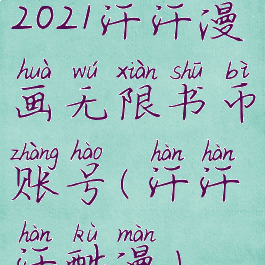 2021汗汗漫
huà wú xiàn shū bì
画无限书币
zhàng hào hàn hàn
账号(汗汗
hàn kù màn
汗酷漫)